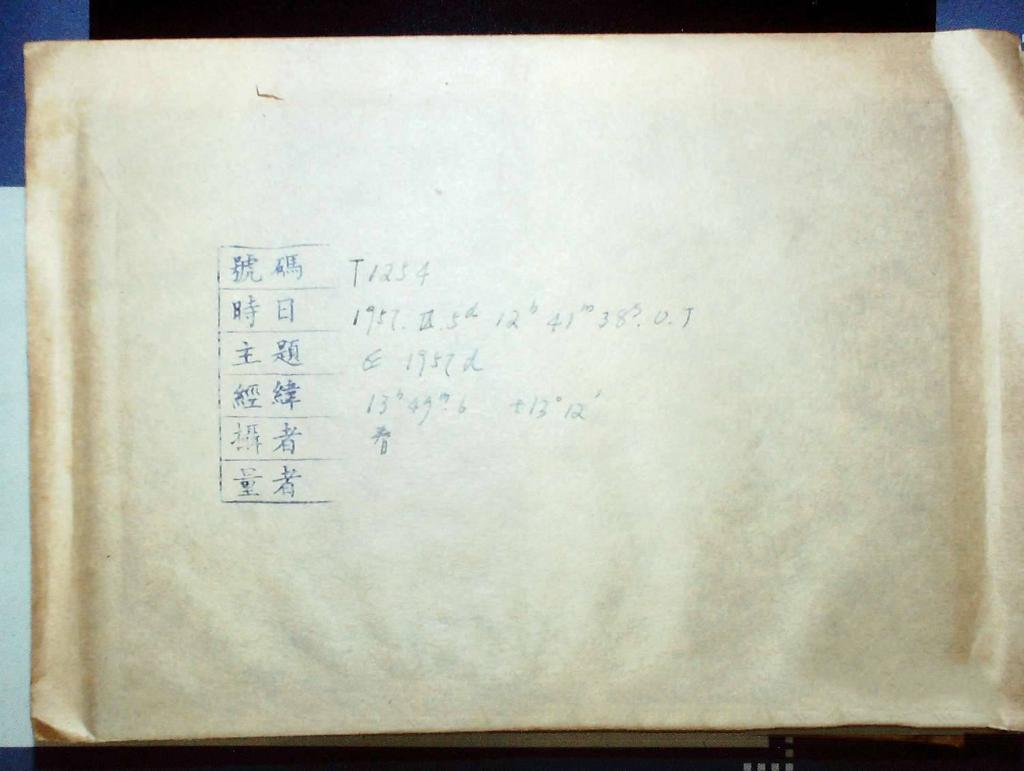 號碼 T1254
時日 1957. III. 5ᵈ 12ʰ 41ᵐ 38ˢ. U.T
主題 C 1957 d
經緯 13ʰ 49ᵐ.6 +13°12'
攝者
量者